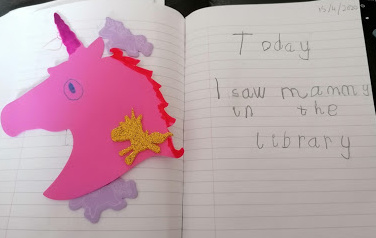 Today
I saw mammy
in the
library